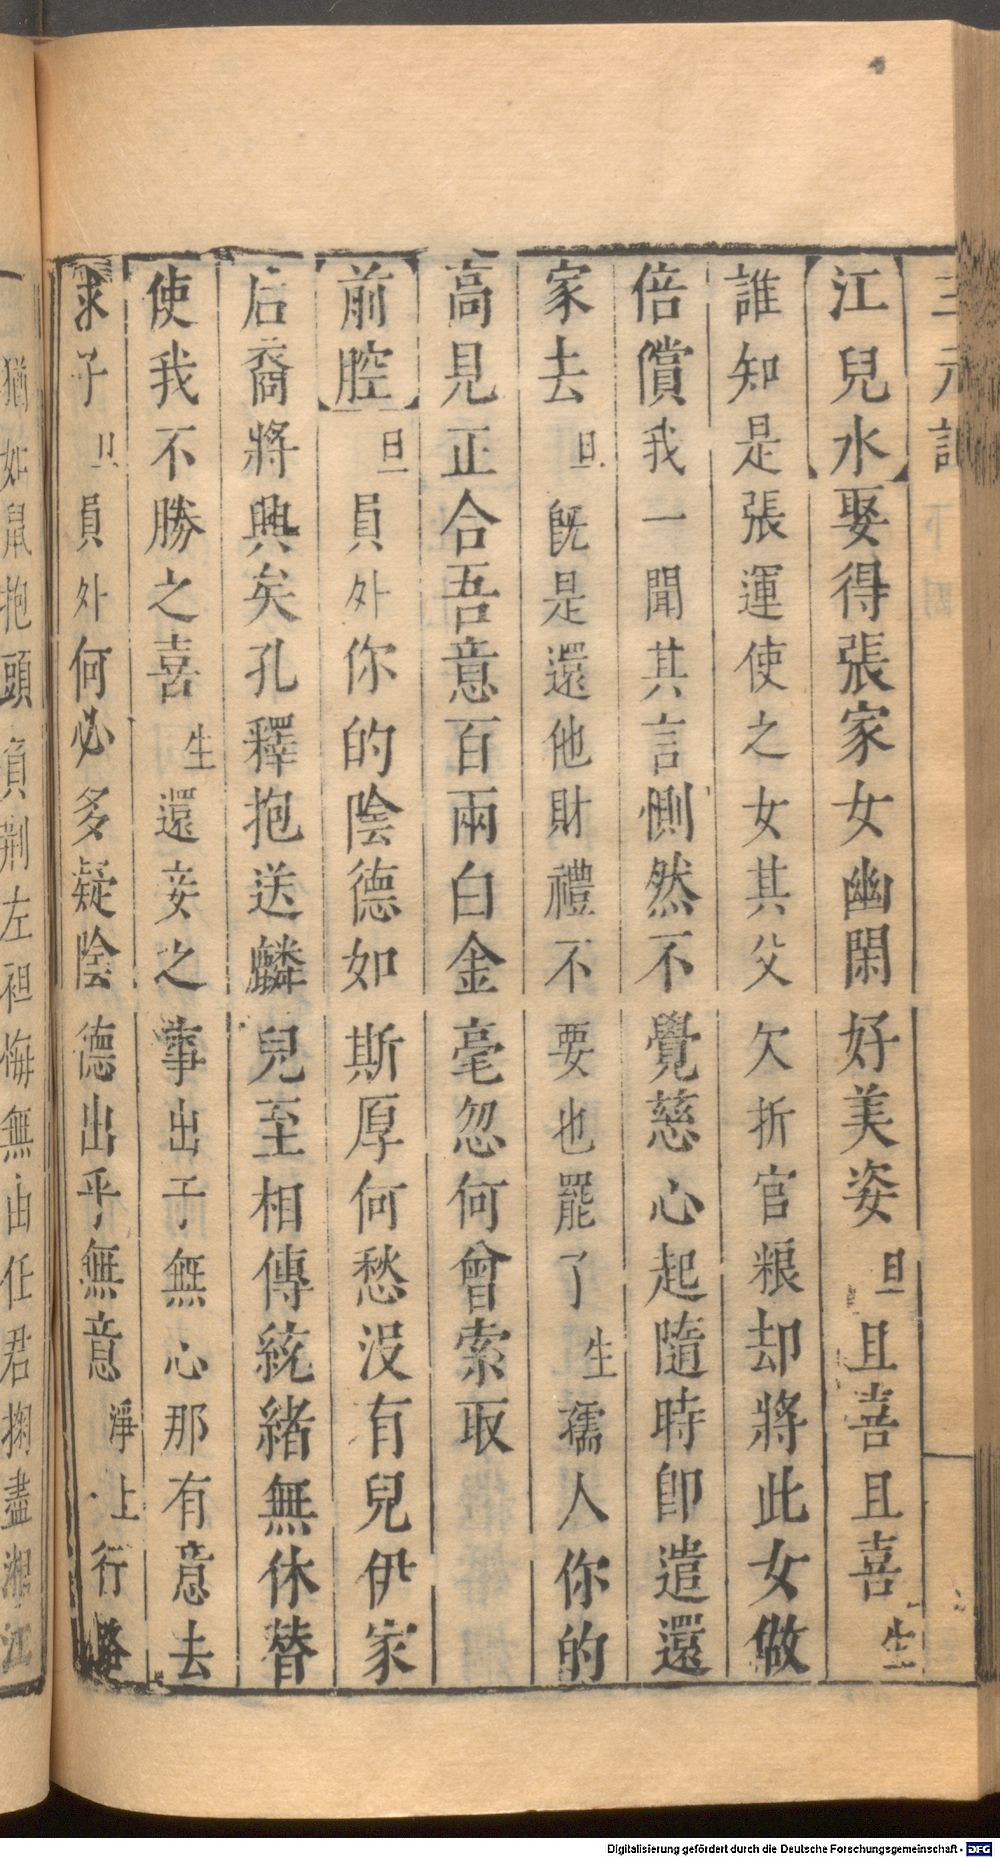 三元記
江兒水娶得張家女幽閑好美姿旦且喜且喜生
誰知是張運使之女其父欠折官粮却將此女做
倍償我一聞其言惻然不覺慈心起隨時卽遣還
家去旦旣是還他財禮不要也罷了生孺人你的
高見正合吾意百兩白金毫忽何曾索取
前腔旦員外你的陰德如斯厚何愁没有兒伊家
后裔將興矣孔釋抱送麟兒至相傳統緒無休替
使我不勝之喜生還妾之事出于無心那有意去
求子旦員外何必多疑陰德出乎無意淨上行路
猶如鼠抱頭負荆左袒悔無由任君掬盡湘江
Digitalisierung gefördert durch die Deutsche Forschungsgemeinschaft - DFG